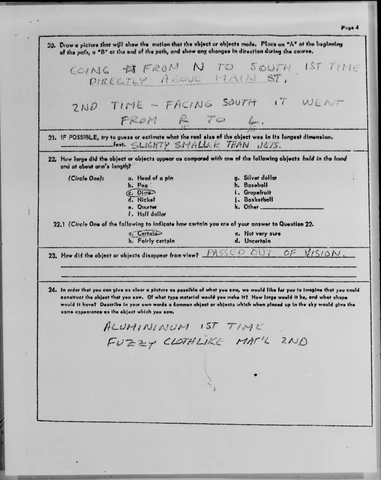 Page 4
20. Draw a picture that will show the motion that the object or objects made. Place an "A" at the beginning
of the path, a "B" at the end of the path, and show any changes in direction during the course.
GOING FROM N TO SOUTH 1ST TIME
DIRECTLY ABOVE MAIN ST.
2ND TIME - FACING SOUTH IT WENT
FROM R TO L.
21. IF POSSIBLE, try to guess or estimate what the real size of the object was in its longest dimension.
feet. SLIGHTY SMALLER THAN JETS.
22. How large did the object or objects appear as compared with one of the following objects held in the hand
and at about arm's length?
(Circle One): a. Head of a pin g. Silver dollar
b. Pea h. Baseball
c. Dime i. Grapefruit
d. Nickel j. Basketball
e. Quarter k. Other
f. Half dollar
22.1 (Circle One of the following to indicate how certain you are of your answer to Question 22.
a. Certain c. Not very sure
b. Fairly certain d. Uncertain
23. How did the object or objects disappear from view? PASSED OUT OF VISION.
24. In order that you can give as clear a picture as possible of what you saw, we would like for you to imagine that you could
construct the object that you saw. Of what type material would you make it? How large would it be, and what shape
would it have? Describe in your own words a common object or objects which when placed up in the sky would give the
same appearance as the object which you saw.
ALUMININUM 1ST TIME
FUZZY CLOTHLIKE MAT'L 2ND